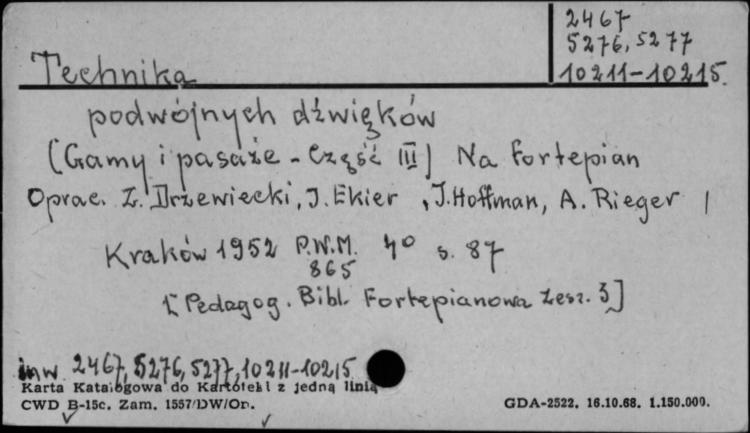 2467
5276, 5277
10211-10215.
Technika
podwójnych dźwięków
(Gamy i pasaże - Część III) Na fortepian
Oprac. Z. Drzewiecki, J. Ekier, J. Hoffman, A. Rieger
Kraków 1952 P.W.M. 4° s. 87
865
[Pedagog. Bibl. Fortepianowa zesz. 3]
inw. 2467, 5276, 5277, 10211-10215
Karta Katalogowa do Kartoteki z jedną linią
CWD B-15c. Zam. 1557/DW/Op.
GDA-2522. 16.10.68. 1.150.000.